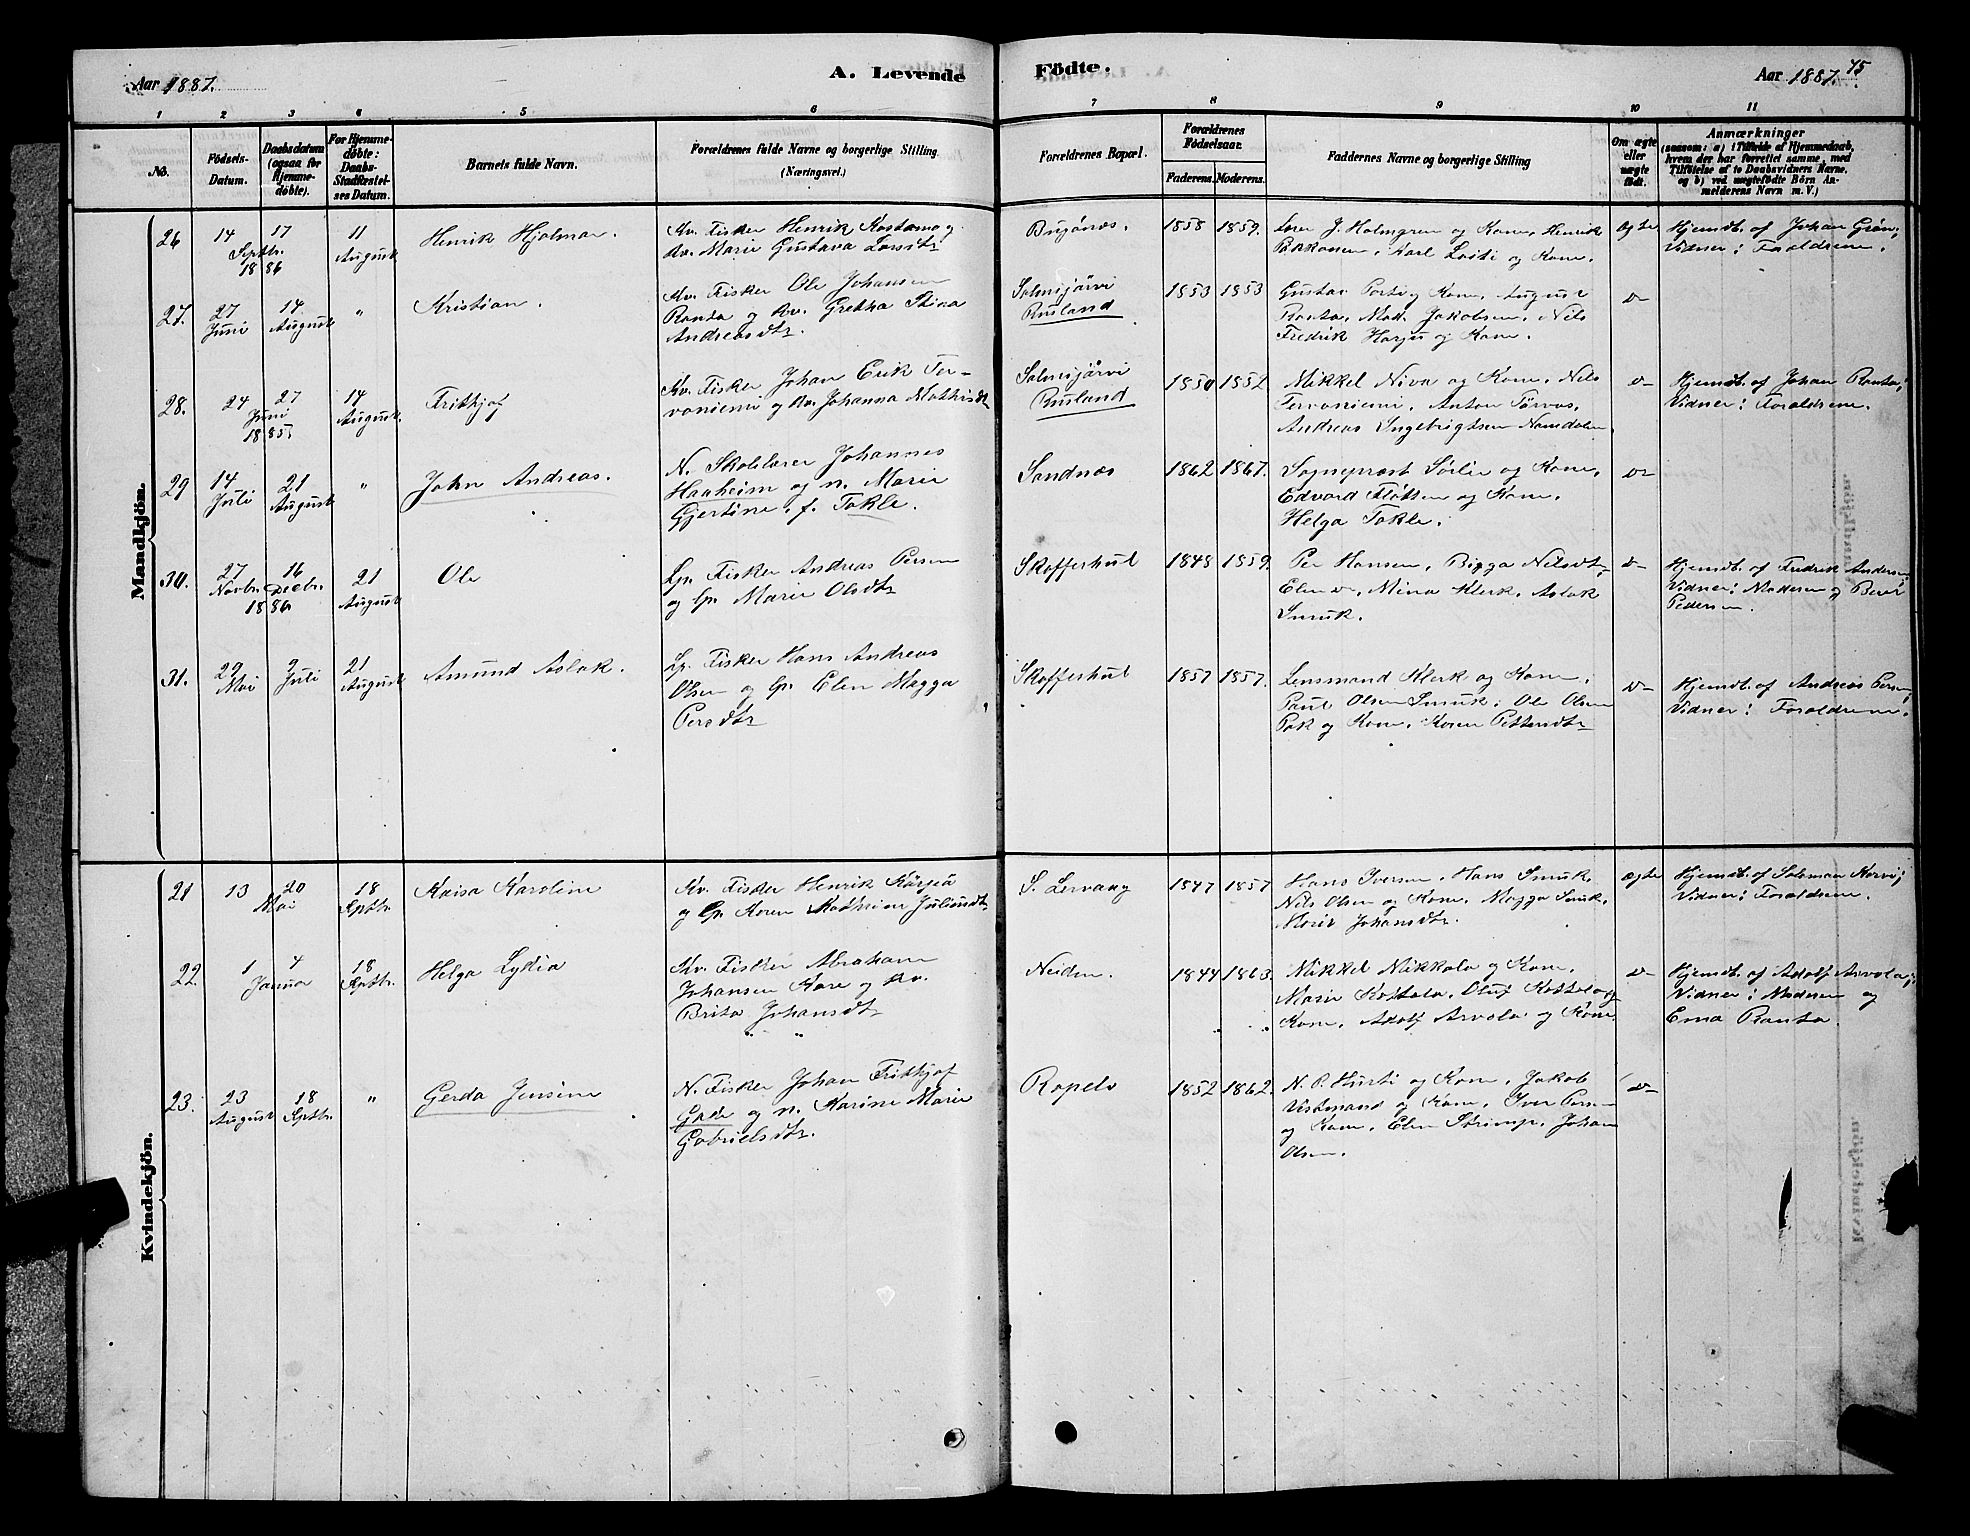 Aar 1887.
A. Levende
Födte.
Aar 1887.
75
1 2 3 4 5 6 7 8 9 10 11
No.
Födsels-Datum.
Daabsdatum (ogsaa for Hjemmedöbte).
For Hjemmedöbte: Daabs-Stadfæstelses Datum.
Barnets fulde Navn.
Forældrenes fulde Navne og borgerlige Stilling.
(Næringsvei.)
Forældrenes Bopæl.
Forældrenes Födselsaar.
Faderens. Moderens.
Faddernes Navne og borgerlige Stilling
Om ægte eller uægte födt.
Anmærkninger
(saasom: a) i Tilfælde af Hjemmedaab, hvem der har forrettet samme, med Tilföielse af to Daabsvidners Navne, og b) ved uægtefödte Börn Anmelderens Navn m. V.)
Mandkjön.
26 14 Septbr. 1886 17 11 August
Henrik Hjalmar.
Kv. Fisker Henrik Kostamo og
kv. Marie Gustava
Bugönæs.
1858 1859.
J. Holmgren og Kone, Henrik
Karl og Kone.
ægte
Hjemdt. af Johan Grön;
Vidner: Forældrene.
27. 27 Juni 14 August "
Kristian.
Kv. Fisker Ole Johansen
Ranta og kv. Gretha Stina
Andreasdtr
Salmijärvi
Rusland
1853 1853
Gustav og Kone, August
Ranta, Mad. Jakobsen, Nils
Fredrik Harju og Kone.
28. 24 27 Juni 1885 14 August
Frithjof
Kv. Fisker Johan Erik Ter-
voniemi og kv. Johanna Mathisdtr
Salmijärvi
Rusland
1850 1852
Mikkel Niva og Kone, Nils
Tervoniemi, Anton
Andreas Ingebrigtsen Namdalen.
Hjemdt. af Johan Ranta;
Vidner: Forældrene.
29 14 Juli 21 August "
John Andreas.
N. Skolelærer Johannes
Haaheim og n. Marie
Gjertine, f. Takle.
Sandnæs
1862 1867.
Sogneprest Sörlie og Kone,
Edvard Flötten og Kone,
Helga Takle.
30. 27 Novbr. 16 Decbr. 1886 21 August
Ole
Lp. Fisker Andreas Persen
og lp. Marie Olsdtr
Skofferhul
1848 1859.
Per Hansen, Bigga Nilsdtr,
Elen Mina Klerk, Aslak
Smuk.
Hjemdt. af Fredrik Andersen;
Vidner: Moderen og
Pedersen.
31. 29 Mai 9 Juli 21 August
Amund Aslak.
Lp. Fisker Hans Andreas
Olsen og lp. Elen Magga
Persdtr
Skofferhul
1857 1857.
Lensmand Klerk og Kone,
Paul Olsen Smuk, Ole Olsen
og Kone, Karen
Hjemdt. af Andreas Persen;
Vidner: Forældrene.
Kvindekjön.
21 13 20 Mai 18 Septbr.
Kaisa Karoline
Kv. Fisker Henrik
og lp. Karen Kathrine
S. Leirvaag
1847 1857
Hans Iversen, Hans Smuk,
Nils Olsen og Kone, Magga Smuk,
Marie Johansdtr.
ægte
Hjemdt. af Salomon
Vidner: Forældrene.
22. 1 4 Januar 18 Septbr.
Helga Lydia
Kv. Fisker Abraham
Johansen og kv.
Brita Johansdtr
Neiden.
1844 1863.
Mikkel Mikkola og Kone,
Marie Kottala, Oluf Kottala og
Kone, Adolf Arvola og Kone.
Hjemdt. af Adolf Arvola;
Vidner: Moderen og
Erna Ranta.
23. 23 August 18 Septbr. "
Gerda Jensine
N. Fisker Johan Frithjof
og n. Karine Marie
Gabrielsdtr.
Ropelv
1852 1862.
N. P. Hurti og Kone, Jakob
Vestmand og Kone, Iver Persen
og Kone, Elen Strimp, Johan
Olsen.